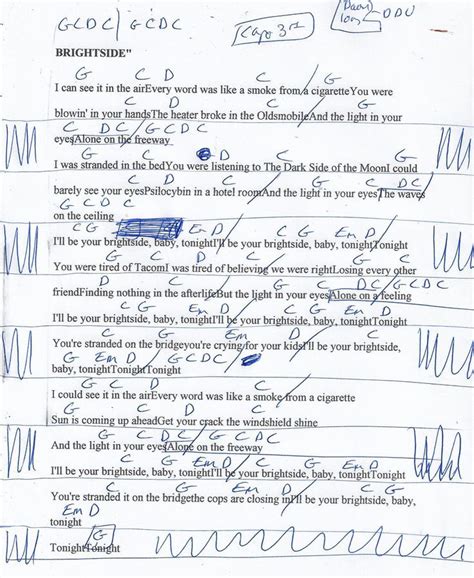 GCDC / GCDC Capo 3rd DDU
BRIGHTSIDE"
G C D C G
I can see it in the airEvery word was like a smoke from a cigaretteYou were
C D C G
blowin' in your handsThe heater broke in the OldsmobileAnd the light in your
C DC / GCDC
eyesAlone on the freeway
G C D C
I was stranded in the bedYou were listening to The Dark Side of the MoonI could
G C D C G C DC
barely see your eyesPsilocybin in a hotel roomAnd the light in your eyesThe waves
G C D C
on the ceiling
C G Em D C G Em D
I'll be your brightside, baby, tonightI'll be your brightside, baby, tonightTonight
G C D C
You were tired of TacomI was tired of believing we were rightLosing every other
G C D C G C DC/GCDC
friendFinding nothing in the afterlifeBut the light in your eyesAlone on a feeling
C G Em D C G Em D
I'll be your brightside, baby, tonightI'll be your brightside, baby, tonightTonight
C G Em D C
You're stranded on the bridgeyou're crying for your kidsI'll be your brightside,
G Em D / GCDC/
baby, tonightTonightTonight
G C D C
I could see it in the airEvery word was like a smoke from a cigarette
G C D C
Sun is coming up aheadGet your crack the windshield shine
G C DC/ GCDC
And the light in your eyesAlone on the freeway
C G Em D C G Em D
I'll be your brightside, baby, tonightI'll be your brightside, baby, tonightTonight
C G Em D C G
You're stranded it on the bridgethe cops are closing inI'll be your brightside, baby,
Em D
tonight
G
TonightTonight